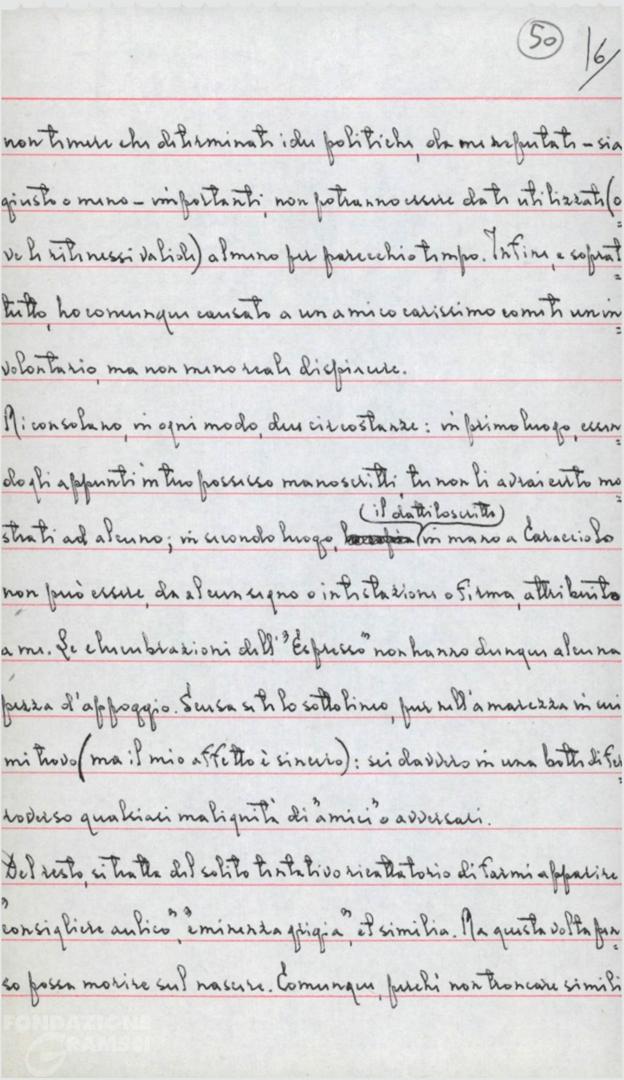 50 16
non temere che determinate idee politiche, da me reputate – sia
giusto o meno – importanti, non potranno essere da te utilizzate (o
ve le ritenessi valide) almeno per parecchio tempo. Infine, e soprat
tutto, ho comunque causato a un amico carissimo come te un in
volontario, ma non meno reale dispiacere.
Mi consolano, in ogni modo, due circostanze: in primo luogo, essen
do gli appunti in tuo possesso manoscritti tu non li avrai certo mo
strati ad alcuno; in secondo luogo, (il dattiloscritto) in mano a Caracciolo
non può essere, da alcun segno o intestazione o firma, attribuito
a me. Le elucubrazioni dell'"Espresso" non hanno dunque alcuna
pezza d'appoggio. Scusa se te lo sottolineo, pur nell'amarezza in cui
mi trovo (ma il mio affetto è sincero): sei davvero in una botte di fer
ro verso qualsiasi malignità di "amici" o avversari.
Del resto, si tratta del solito tentativo ricattatorio di farmi apparire
"consigliere aulico", "eminenza grigia", et similia. Ma questa volta pen
so possa morire sul nascere. Comunque, perché non troncare simili
FONDAZIONE
GRAMSCI